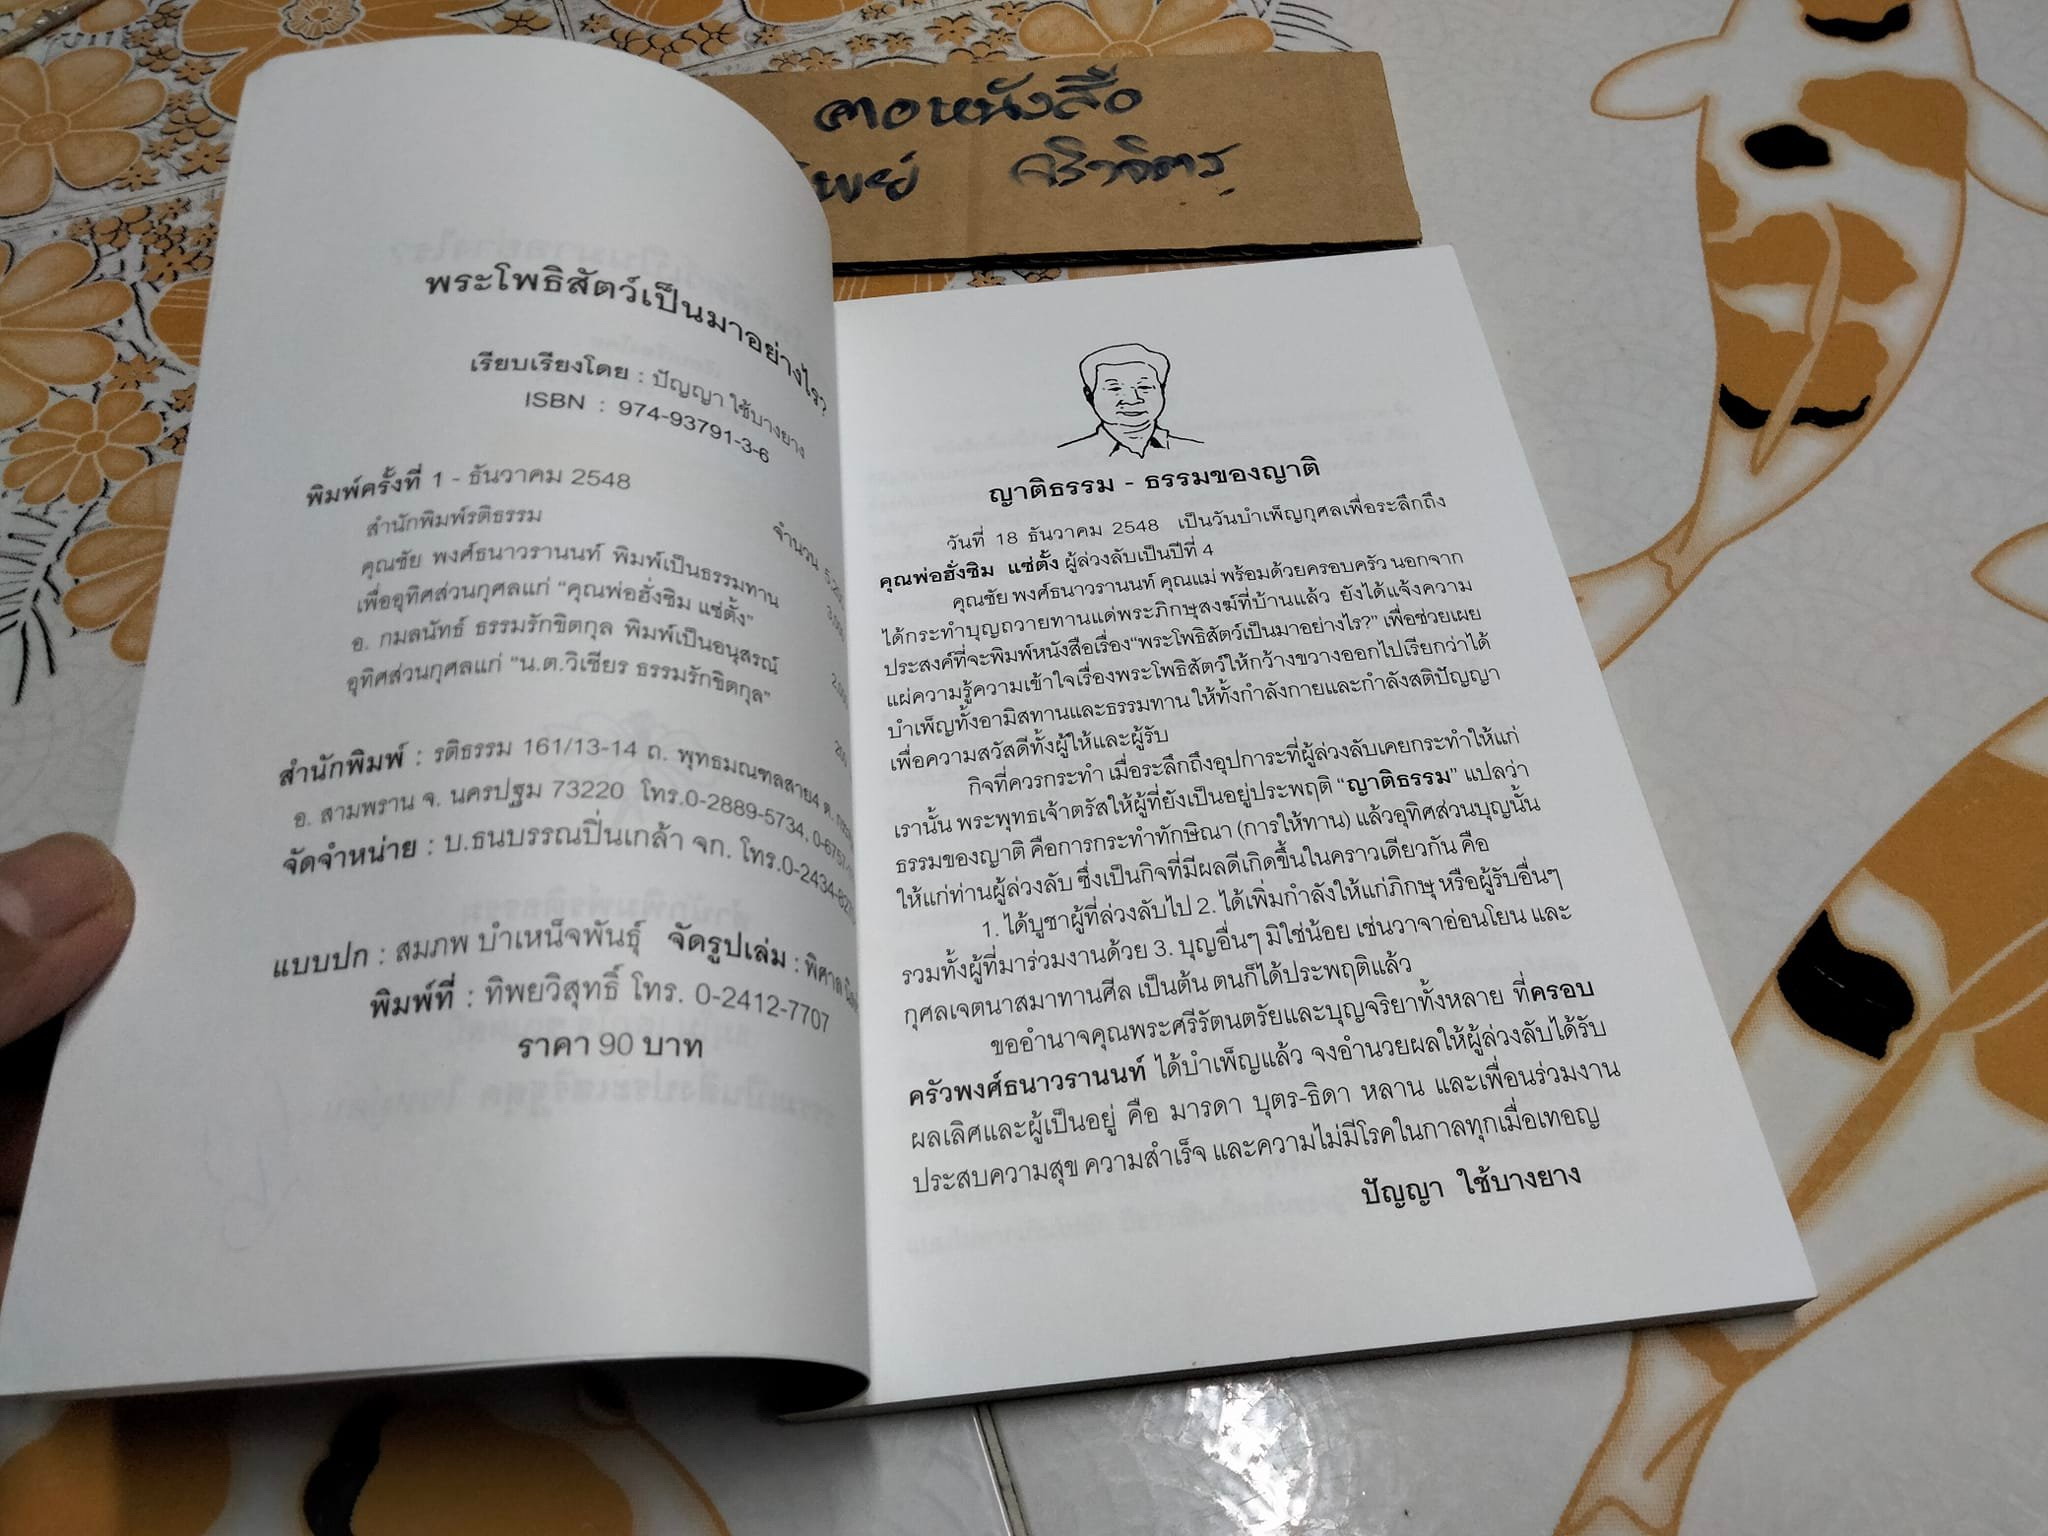 คอหนังสือ
พระโพธิสัตว์เป็นมาอย่างไร?
เรียบเรียงโดย : ปัญญา ใช้บางยาง
ISBN : 974-93791-3-6
พิมพ์ครั้งที่ 1 - ธันวาคม 2548 จำนวน
สำนักพิมพ์รติธรรม
คุณชัย พงศ์ธนาวรานนท์ พิมพ์เป็นธรรมทาน
เพื่ออุทิศส่วนกุศลแก่ "คุณพ่อฮั่งซิม แซ่ตั้ง"
อ. กมลนัทธ์ ธรรมรักขิตกุล พิมพ์เป็นอนุสรณ์
อุทิศส่วนกุศลแก่ "น.ต.วิเชียร ธรรมรักขิตกุล"
สำนักพิมพ์ : รติธรรม 161/13-14 ถ. พุทธมณฑลสาย4 ต.
อ. สามพราน จ. นครปฐม 73220 โทร.0-2889-5734,
จัดจำหน่าย : บ.ธนบรรณปิ่นเกล้า จก. โทร.0-2434-
แบบปก : สมภพ บำเหน็จพันธุ์ จัดรูปเล่ม : พิศาล
พิมพ์ที่ : ทิพยวิสุทธิ์ โทร. 0-2412-7707
ราคา 90 บาท
ญาติธรรม - ธรรมของญาติ
วันที่ 18 ธันวาคม 2548 เป็นวันบำเพ็ญกุศลเพื่อระลึกถึง
คุณพ่อฮั่งซิม แซ่ตั้ง ผู้ล่วงลับเป็นปีที่ 4
คุณชัย พงศ์ธนาวรานนท์ คุณแม่ พร้อมด้วยครอบครัว นอกจาก
ได้กระทำบุญถวายทานแด่พระภิกษุสงฆ์ที่บ้านแล้ว ยังได้แจ้งความ
ประสงค์ที่จะพิมพ์หนังสือเรื่อง"พระโพธิสัตว์เป็นมาอย่างไร?" เพื่อช่วยเผย
แผ่ความรู้ความเข้าใจเรื่องพระโพธิสัตว์ให้กว้างขวางออกไปเรียกว่าได้
บำเพ็ญทั้งอามิสทานและธรรมทาน ให้ทั้งกำลังกายและกำลังสติปัญญา
เพื่อความสวัสดีทั้งผู้ให้และผู้รับ
กิจที่ควรกระทำ เมื่อระลึกถึงอุปการะที่ผู้ล่วงลับเคยกระทำให้แก่
เรานั้น พระพุทธเจ้าตรัสให้ผู้ที่ยังเป็นอยู่ประพฤติ "ญาติธรรม" แปลว่า
ธรรมของญาติ คือการกระทำทักษิณา (การให้ทาน) แล้วอุทิศส่วนบุญนั้น
ให้แก่ท่านผู้ล่วงลับ ซึ่งเป็นกิจที่มีผลดีเกิดขึ้นในคราวเดียวกัน คือ
1. ได้บูชาผู้ที่ล่วงลับไป 2. ได้เพิ่มกำลังให้แก่ภิกษุ หรือผู้รับอื่นๆ
รวมทั้งผู้ที่มาร่วมงานด้วย 3. บุญอื่นๆ มิใช่น้อย เช่นวาจาอ่อนโยน และ
กุศลเจตนาสมาทานศีล เป็นต้น ตนก็ได้ประพฤติแล้ว
ขออำนาจคุณพระศรีรัตนตรัยและบุญจริยาทั้งหลาย ที่ครอบ
ครัวพงศ์ธนาวรานนท์ ได้บำเพ็ญแล้ว จงอำนวยผลให้ผู้ล่วงลับได้รับ
ผลเลิศและผู้เป็นอยู่ คือ มารดา บุตร-ธิดา หลาน และเพื่อนร่วมงาน
ประสบความสุข ความสำเร็จ และความไม่มีโรคในกาลทุกเมื่อเทอญ
ปัญญา ใช้บางยาง